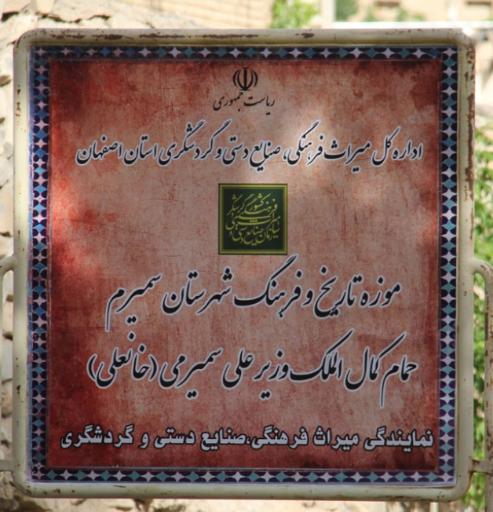 ریاست جمهوری
اداره کل میراث فرهنگی، صنایع دستی و گردشگری استان اصفهان
موزه تاریخ و فرهنگ شهرستان سمیرم
حمام کمال الملک وزیر علی سمیرمی (خانعلی)
نمایندگی میراث فرهنگی،صنایع دستی و گردشگری